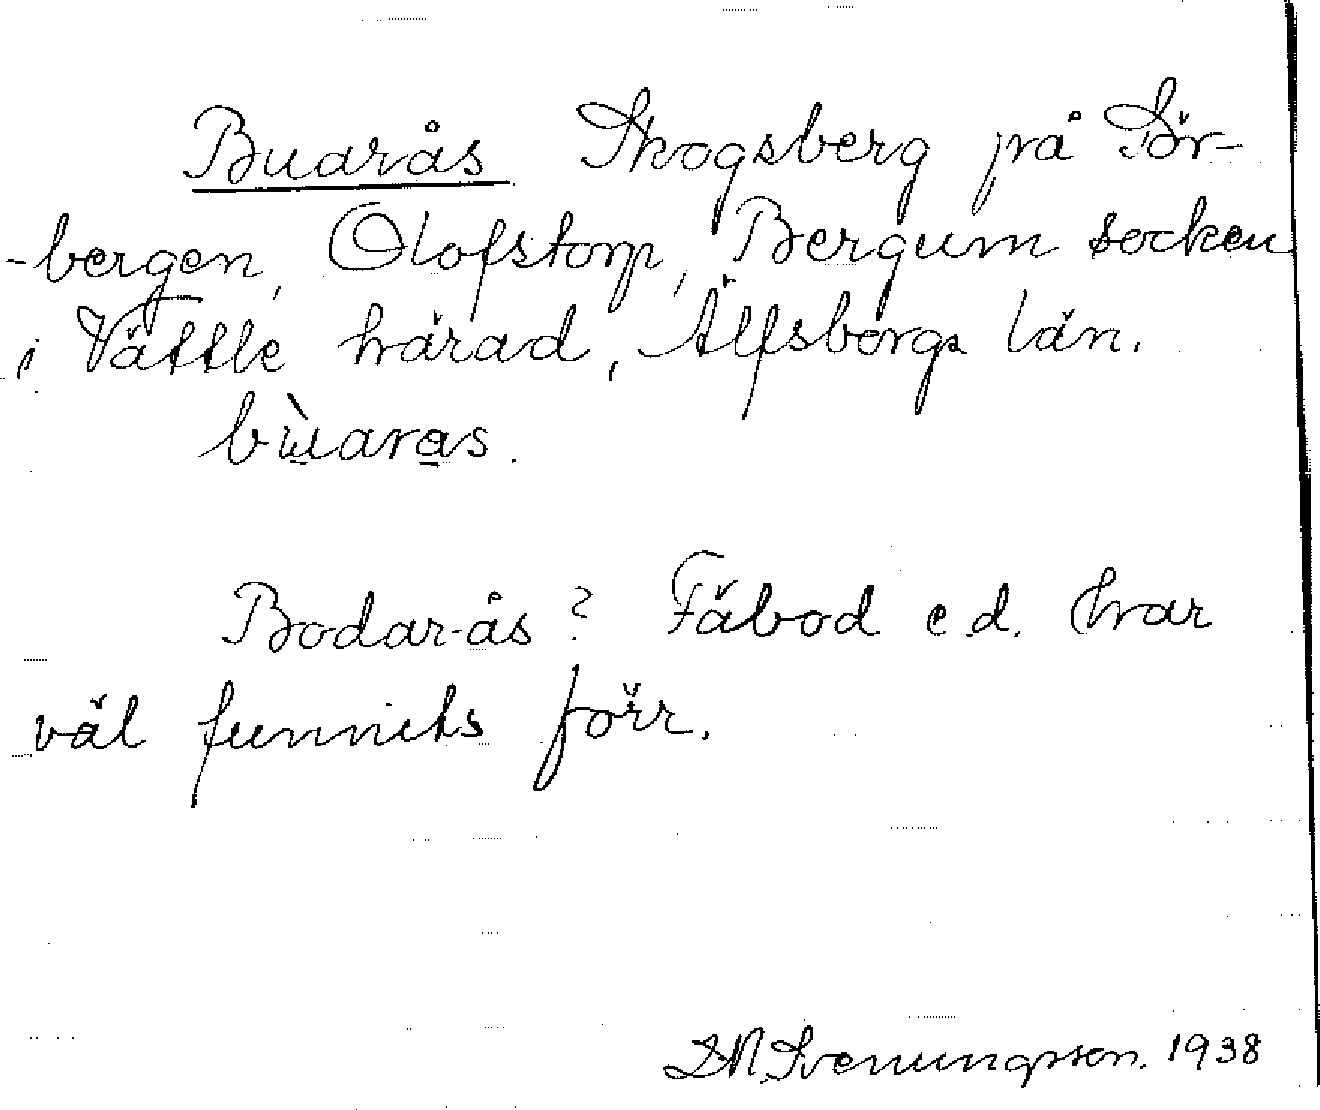 Buarås Skogsberg på Sör-
-bergen, Olofstorp, Bergum socken
i Vättle härad, Älfsborgs län.
bùaras.
Bodar-ås? Fäbod e d. har
väl funnits förr.
Svenungsson. 1938